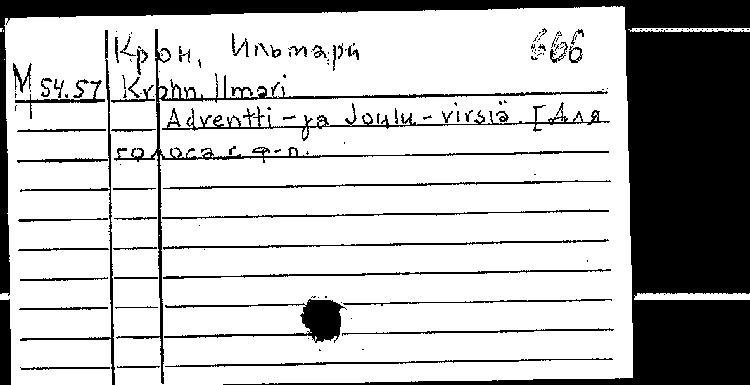 Крон, Ильмари 666
М 54.57 Krohn, Ilmari
Adventti-ja Joulu-virsiä. [Для
голоса с ф-п.